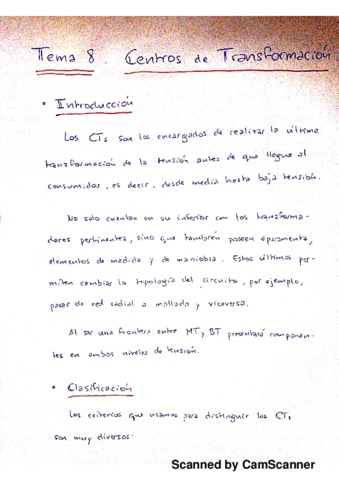 Tema 8. Centros de Transformación
• Introducción
Los CTs son los encargados de realizar la última
transformación de la tensión antes de que llegue al
consumidor, es decir, desde media hasta baja tensión.
No solo cuentan en su interior con los transforma-
dores pertinentes, sino que también poseen aparamenta,
elementos de medida y de maniobra. Estos últimos per-
miten cambiar la topología del circuito, por ejemplo,
pasar de red radial a mallada y viceversa.
Al ser una frontera entre MT y BT presentará componen-
tes en ambos niveles de tensión.
• Clasificación
Los criterios que usamos para distinguir los CTs
son muy diversos:
Scanned by CamScanner